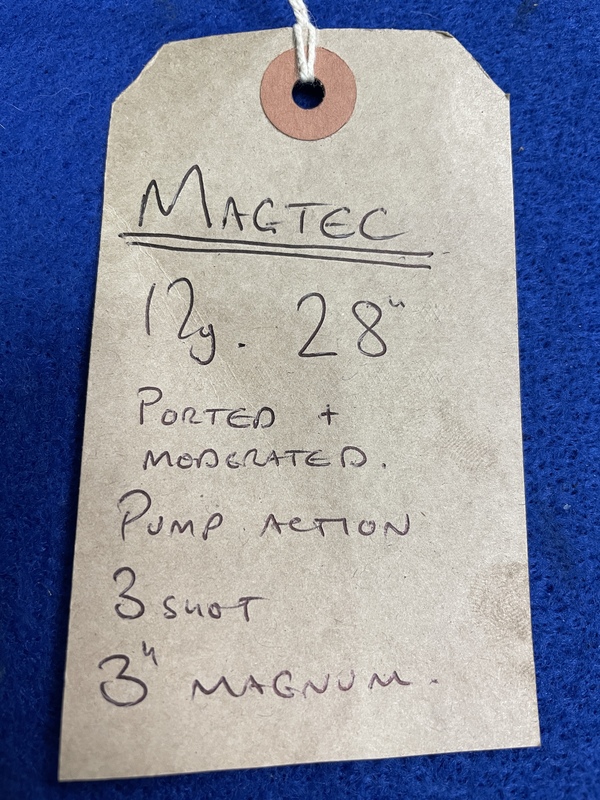 MAGTEC
12g. 28"
PORTED +
MODERATED.
PUMP ACTION
3 SHOT
3" MAGNUM.